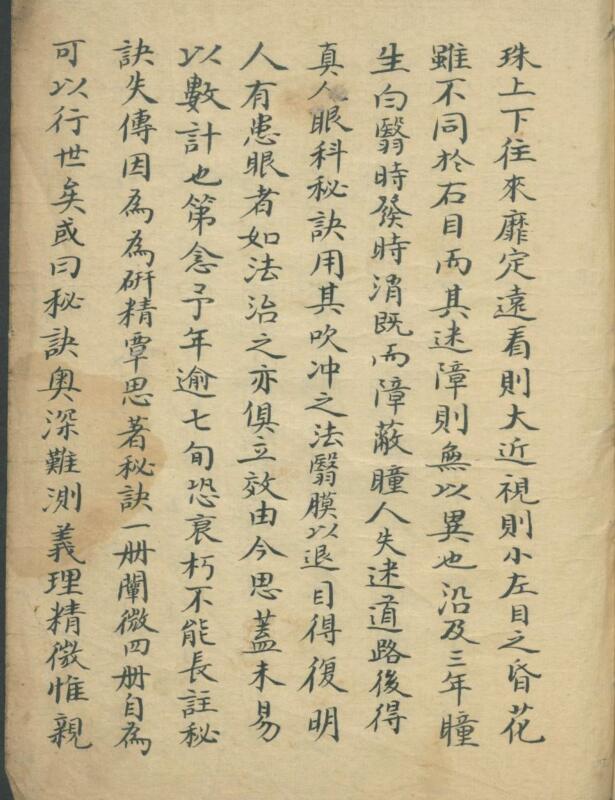 珠上下往來靡定遠看則大近視則小左目之昏花
雖不同於右目而其迷障則無以異也沿及三年瞳
生白翳時發時消既而障蔽瞳人失迷道路後得
真人眼科秘訣用其吹冲之法翳膜以退目得復明
人有患眼者如法治之亦俱立效由今思蓋未易
以數計也第念予年逾七旬恐衰朽不能長註秘
訣失傳因為為研精覃思著秘訣一册闡微四册自為
可以行世矣或曰秘訣奧深難測義理精微惟親